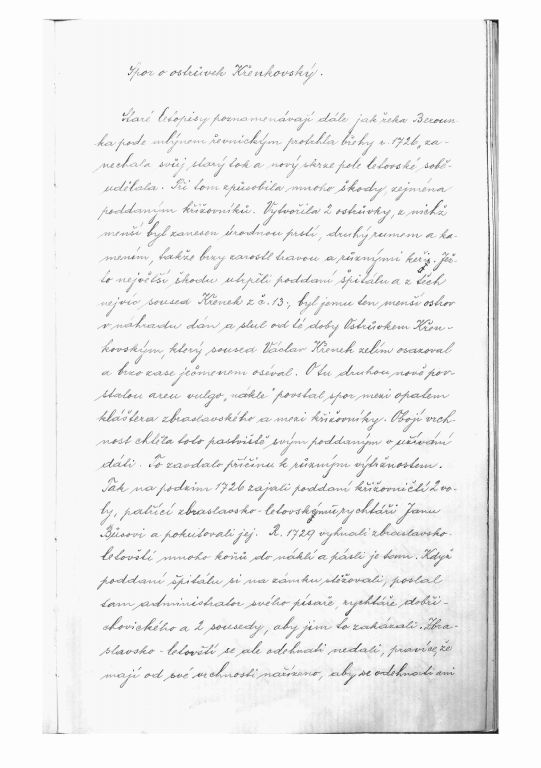 Spor o ostrůvek Křenkovský.
Staré letopisy poznamenávají dále jak řeka Beroun-
ka pode mlýnem řevnickým protrhla břehy r. 1726, za-
nechala svůj starý tok a nový skrze pole letovské sobě
udělala. Při tom způsobila mnoho škody, zejména
poddaným křižovníků. Vytvořila 2 ostrůvky, z nichž
menší byl zanesen úrodnou prstí, druhý rumem a ka-
mením, takže brzy zarostl travou a různými keři. Jež-
to největší škodu utrpěli poddaní špitálu a z těch
nejvíc soused Křenek z č. 13., byl jemu ten menší ostrov
v náhradu dán a slul od té doby Ostrůvkem Křen-
kovským, který soused Václav Křenek zelím osazoval
a brzo zase ječmenem oséval. O tu druhou nově pov-
stalou areu vulgo "náklí" povstal spor mezi opatem
kláštera zbraslavského a mezi křižovníky. Obojí vrch-
nost chtěla toto pastviště svým poddaným v užívání
dáti. To zavdalo příčinu k různým výtržnostem.
Tak na podzim 1726 zajali poddaní křižovničtí 2 vo-
ly, patřící zbraslavsko-letovskému rychtáři Janu
Bůsovi a pokutovali jej. R. 1729 vyhnali zbraslavsko-
letovští mnoho koňů do náklí a pásli je tam. Když
poddaní špitálu si na zámku stěžovali, poslal
tam administrator svého písaře, rychtáře dobři-
chovického a 2 sousedy, aby jim to zakázali. Zbra-
slavsko-letovští se ale odehnati nedali, pravíce, že
mají od své vrchnosti nařízeno, aby se odehnati ani